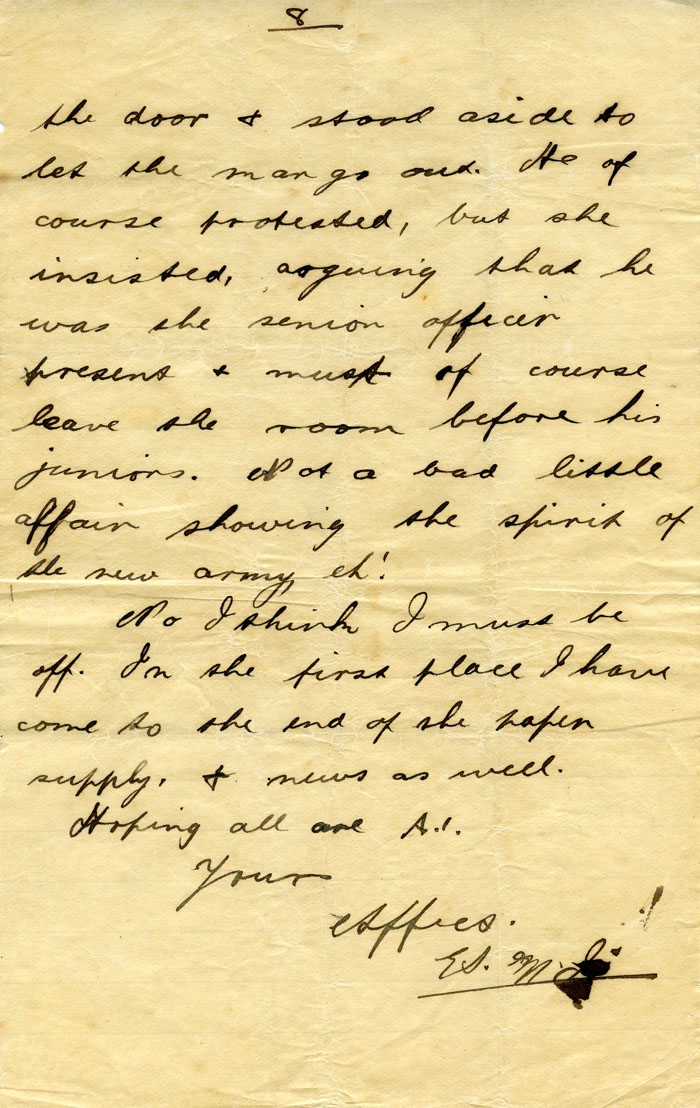 8
the door & stood aside to
let the man go out. He of
course protested, but she
insisted, arguing that he
was the senior officer
present & must of course
leave the room before his
juniors. Not a bad little
affair showing the spirit of
the new army, eh!
No I think I must be
off. In the first place I have
come to the end of the paper
supply, & news as well.
Hoping all are A.1.
Yours
Affec.